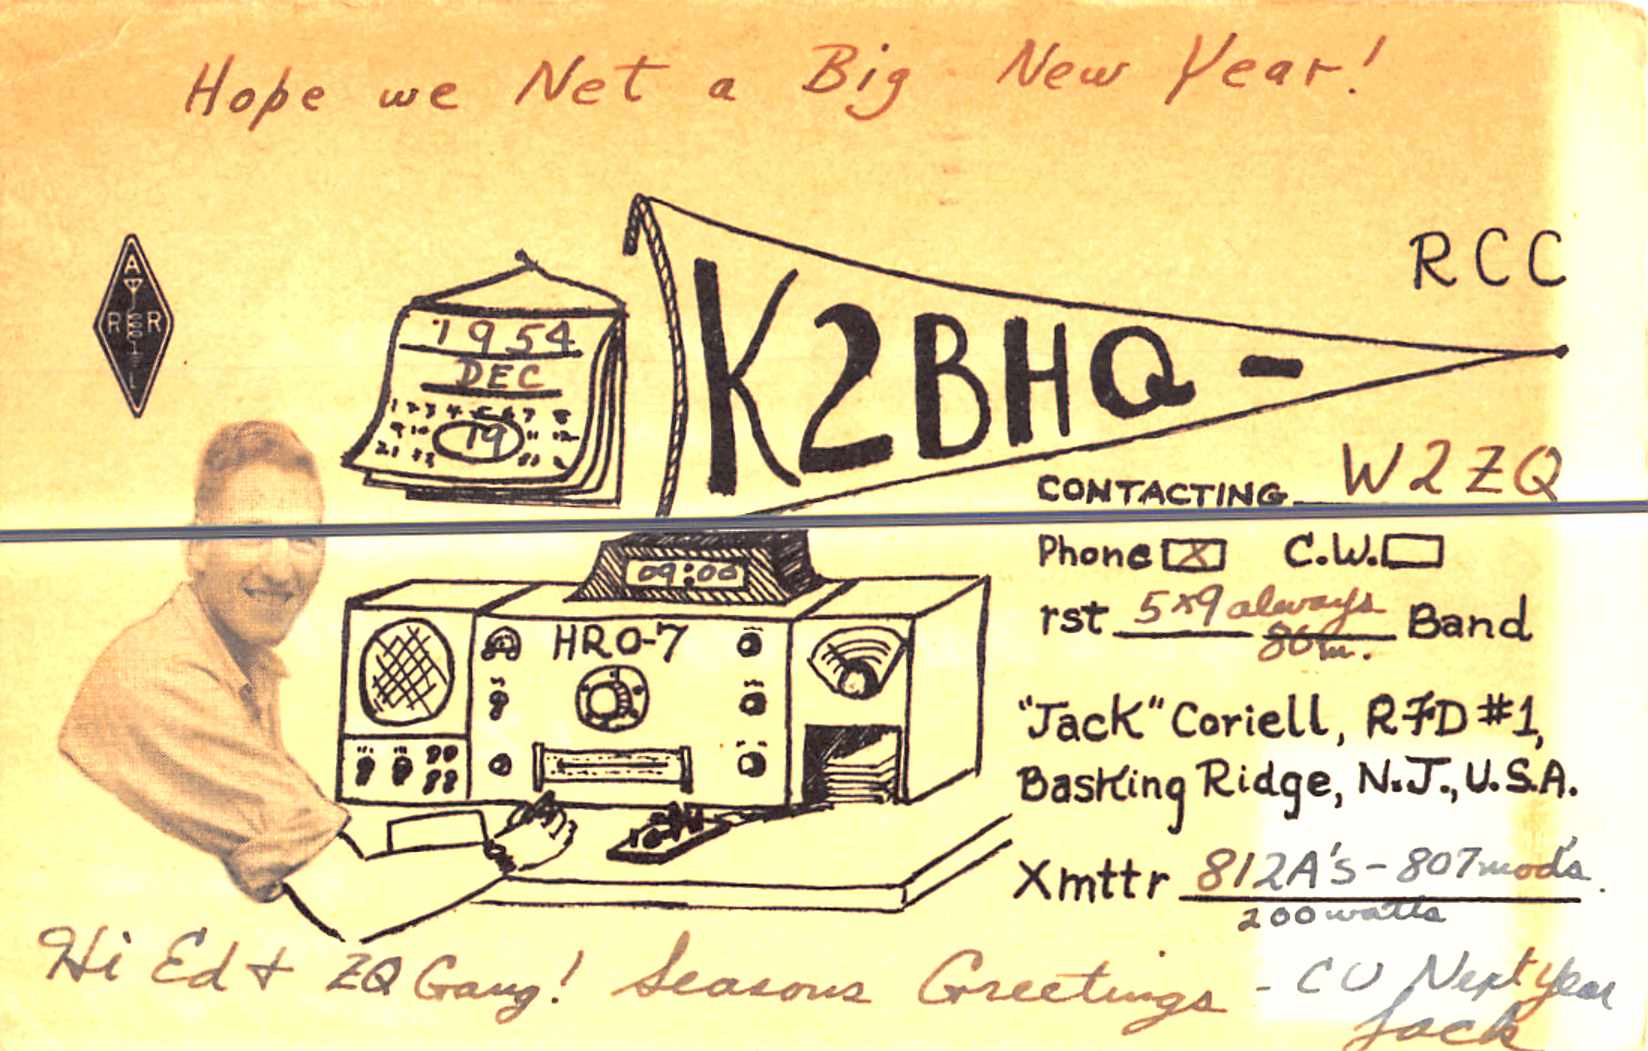 Hope we Net a Big New Year!
RCC
A
R R
L
1954
DEC
19
K2BHQ -
CONTACTING W2ZQ
Phone X C.W.
09:00
rst 5x9 always Band
80m.
HRO-7
"Jack" Coriell, RFD #1,
Basking Ridge, N.J., U.S.A.
Xmttr 812A's - 807 mod's.
200 watts
Hi Ed + ZQ Gang! Seasons Greetings - CU Next Year
Jack